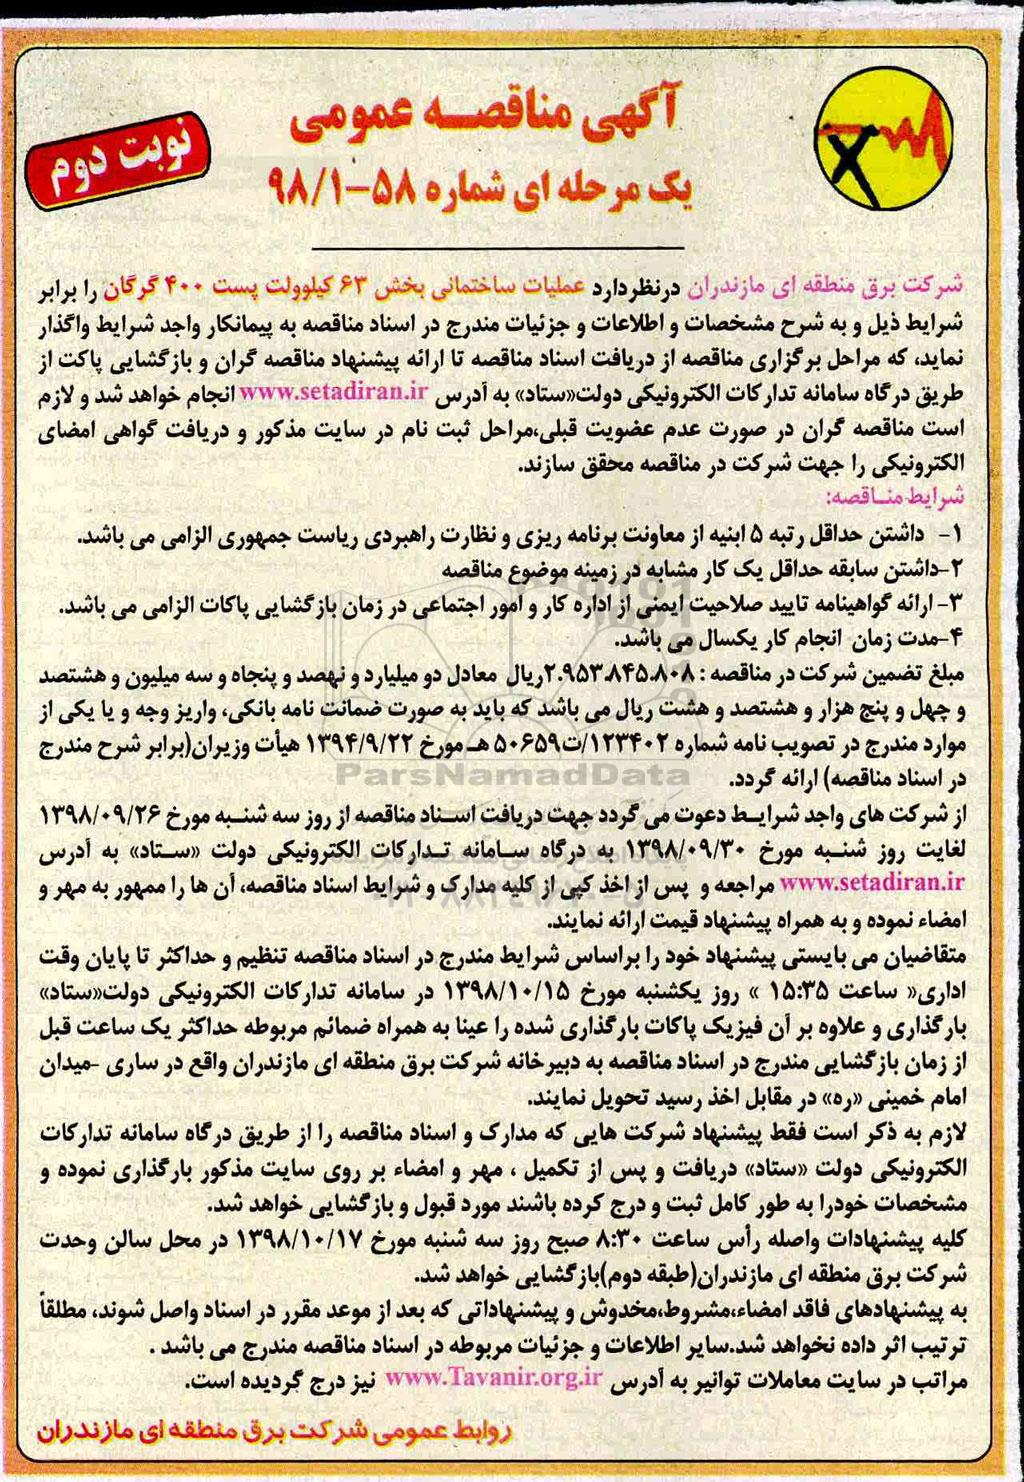 آگهی مناقصه عمومی
نوبت دوم
یک مرحله ای شماره ۵۸-۹۸/۱
شرکت برق منطقه ای مازندران درنظردارد عملیات ساختمانی بخش ۶۳ کیلوولت پست ۴۰۰ گرگان را برابر
شرایط ذیل و به شرح مشخصات و اطلاعات و جزئیات مندرج در اسناد مناقصه به پیمانکار واجد شرایط واگذار
نماید، که مراحل برگزاری مناقصه از دریافت اسناد مناقصه تا ارائه پیشنهاد مناقصه گران و بازگشایی پاکت از
طریق درگاه سامانه تدارکات الکترونیکی دولت«ستاد» به آدرس www.setadiran.ir انجام خواهد شد و لازم
است مناقصه گران در صورت عدم عضویت قبلی،مراحل ثبت نام در سایت مذکور و دریافت گواهی امضای
الکترونیکی را جهت شرکت در مناقصه محقق سازند.
شرایط مناقصه:
۱- داشتن حداقل رتبه ۵ ابنیه از معاونت برنامه ریزی و نظارت راهبردی ریاست جمهوری الزامی می باشد.
۲-داشتن سابقه حداقل یک کار مشابه در زمینه موضوع مناقصه
۳- ارائه گواهینامه تایید صلاحیت ایمنی از اداره کار و امور اجتماعی در زمان بازگشایی پاکات الزامی می باشد.
۴-مدت زمان انجام کار یکسال می باشد.
مبلغ تضمین شرکت در مناقصه : ۲.۹۵۳.۸۴۵.۸۰۸ریال معادل دو میلیارد و نهصد و پنجاه و سه میلیون و هشتصد
و چهل و پنج هزار و هشتصد و هشت ریال می باشد که باید به صورت ضمانت نامه بانکی، واریز وجه و یا یکی از
موارد مندرج در تصویب نامه شماره ۱۲۳۴۰۲/ت۵۰۶۵۹ هـ مورخ ۱۳۹۴/۹/۲۲ هیأت وزیران(برابر شرح مندرج
در اسناد مناقصه) ارائه گردد.
ParsNamadData
از شرکت های واجد شرایط دعوت می گردد جهت دریافت اسناد مناقصه از روز سه شنبه مورخ ۱۳۹۸/۰۹/۲۶
لغایت روز شنبه مورخ ۱۳۹۸/۰۹/۳۰ به درگاه سامانه تدارکات الکترونیکی دولت «ستاد» به آدرس
www.setadiran.ir مراجعه و پس از اخذ کپی از کلیه مدارک و شرایط اسناد مناقصه، آن ها را ممهور به مهر و
امضاء نموده و به همراه پیشنهاد قیمت ارائه نمایند.
متقاضیان می بایستی پیشنهاد خود را براساس شرایط مندرج در اسناد مناقصه تنظیم و حداکثر تا پایان وقت
اداری« ساعت ۱۵:۳۵ » روز یکشنبه مورخ ۱۳۹۸/۱۰/۱۵ در سامانه تدارکات الکترونیکی دولت«ستاد»
بارگذاری و علاوه بر آن فیزیک پاکات بارگذاری شده را عینا به همراه ضمائم مربوطه حداکثر یک ساعت قبل
از زمان بازگشایی مندرج در اسناد مناقصه به دبیرخانه شرکت برق منطقه ای مازندران واقع در ساری -میدان
امام خمینی «ره» در مقابل اخذ رسید تحویل نمایند.
لازم به ذکر است فقط پیشنهاد شرکت هایی که مدارک و اسناد مناقصه را از طریق درگاه سامانه تدارکات
الکترونیکی دولت «ستاد» دریافت و پس از تکمیل ، مهر و امضاء بر روی سایت مذکور بارگذاری نموده و
مشخصات خودرا به طور کامل ثبت و درج کرده باشند مورد قبول و بازگشایی خواهد شد.
کلیه پیشنهادات واصله رأس ساعت ۸:۳۰ صبح روز سه شنبه مورخ ۱۳۹۸/۱۰/۱۷ در محل سالن وحدت
شرکت برق منطقه ای مازندران(طبقه دوم)بازگشایی خواهد شد.
به پیشنهادهای فاقد امضاء،مشروط،مخدوش و پیشنهاداتی که بعد از موعد مقرر در اسناد واصل شوند، مطلقاً
ترتیب اثر داده نخواهد شد.سایر اطلاعات و جزئیات مربوطه در اسناد مناقصه مندرج می باشد .
مراتب در سایت معاملات توانیر به آدرس www.Tavanir.org.ir نیز درج گردیده است.
روابط عمومی شرکت برق منطقه ای مازندران